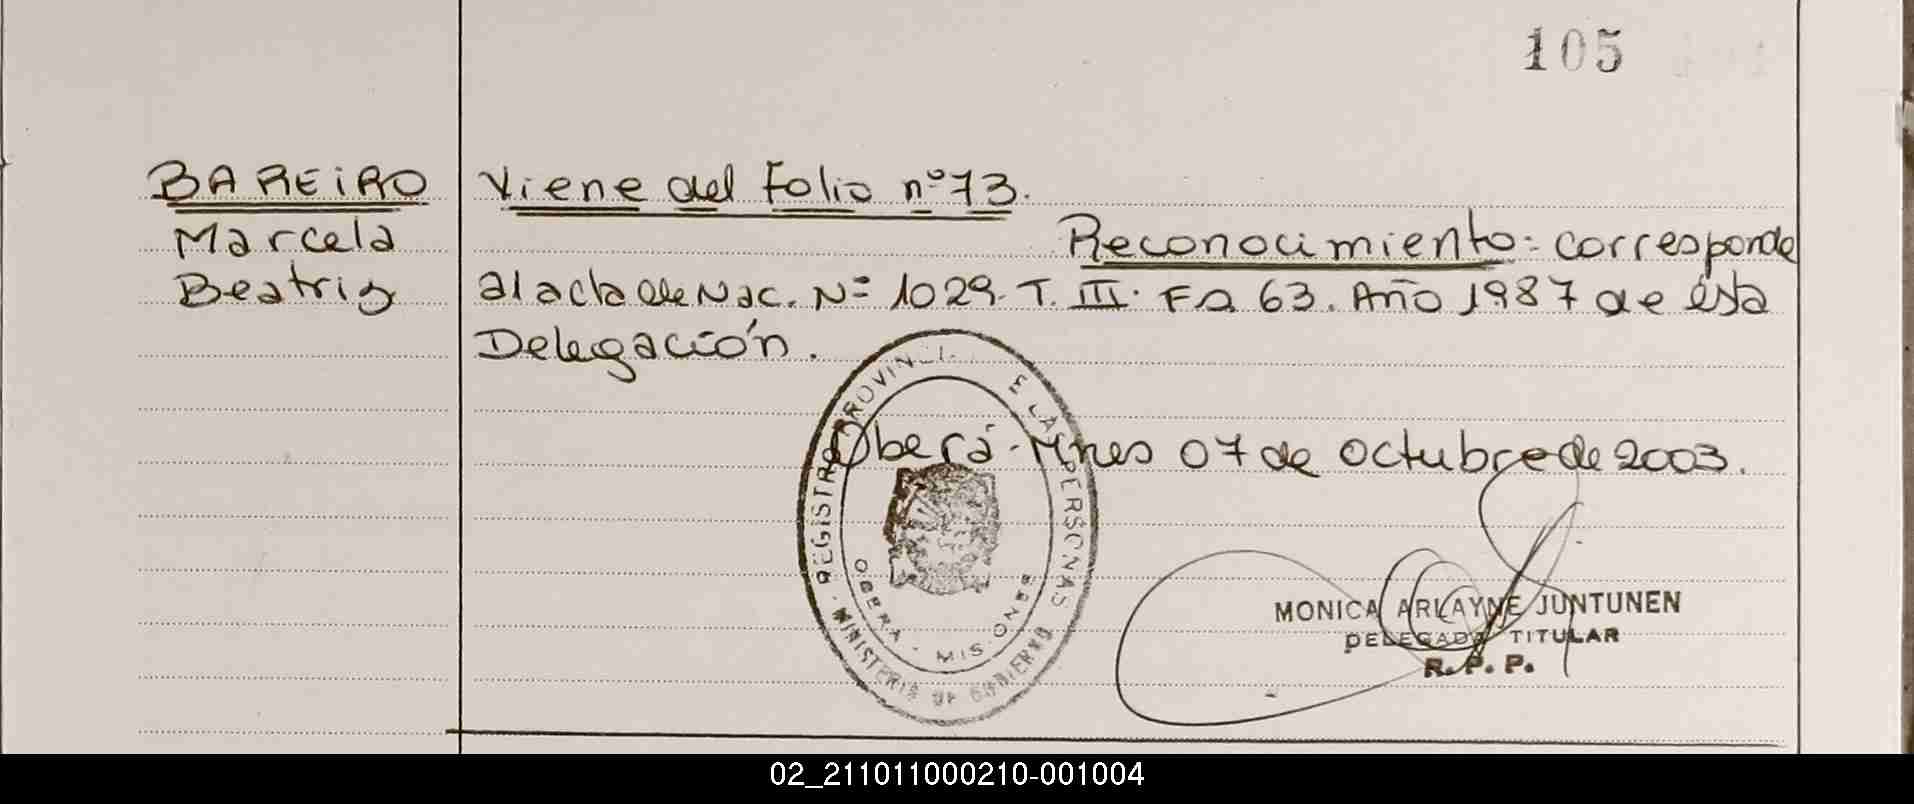 105
BAREIRO
Marcela
Beatriz
Viene del Folio nº 73.
Reconocimiento: corresponde
al acta de Nac. Nº 1029. T. III. Fº 63. Año 1987 de ésta
Delegación.
Oberá - Mnes 07 de Octubre de 2003.
REGISTR PROVINCI E LAS PERSONAS
MINISTERIO DE GOBIERNO
OBERA - MISIONES
MONICA ARLAYNE JUNTUNEN
DELEGADA TITULAR
R. P. P.
02_211011000210-001004